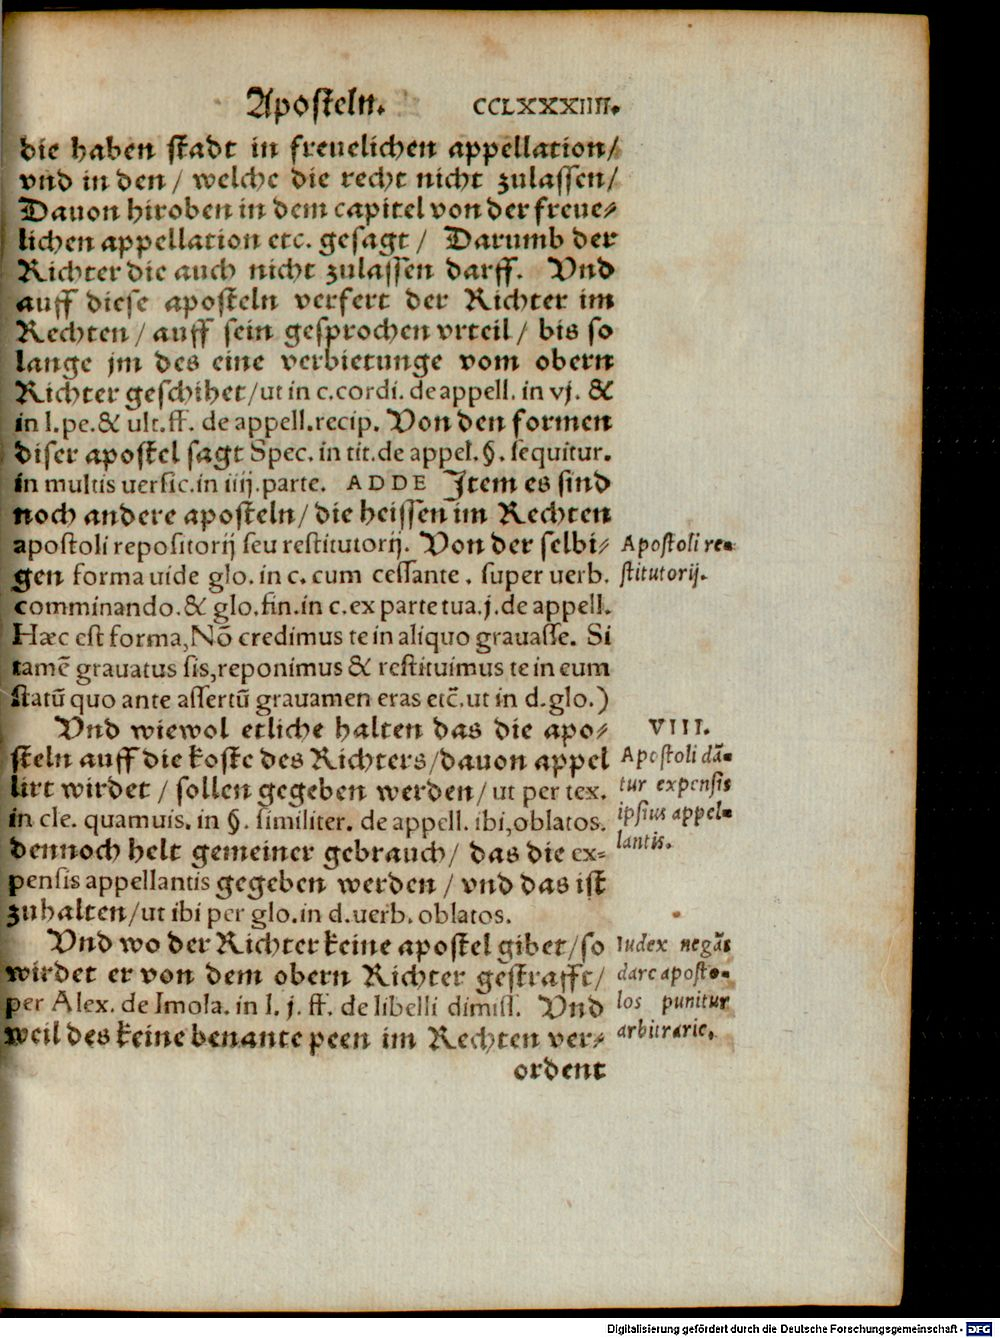 Aposteln. CCLXXXIIII.
die haben stadt in freuelichen appellation/
vnd in den / welche die recht nicht zulassen/
Dauon hiroben in dem capitel von der freue⸗
lichen appellation etc. gesagt / Darumb der
Richter die auch nicht zulassen darff. Vnd
auff diese aposteln verfert der Richter im
Rechten / auff sein gesprochen vrteil / bis so
lange jm des eine verbietunge vom obern
Richter geschihet/ut in c.cordi. de appell. in vj. &
in l.pe.& ult.ff. de appell.recip. Von den formen
diser apostel sagt Spec. in tit.de appel.§. sequitur.
in multis uersic.in iiij.parte. ADDE Item es sind
noch andere aposteln/ die heissen im Rechten
apostoli repositorij seu restitutorij. Von der selbi⸗
gen forma uide glo. in c. cum cessante . super uerb.
comminando.& glo.fin.in c.ex parte tua.j.de appell.
Hæc est forma,Nō credimus te in aliquo grauasse. Si
tamē grauatus sis,reponimus & restituimus te in eum
statū quo ante assertū grauamen eras etc̄.ut in d.glo.)
Apostoli re⸗
stitutorij.
Vnd wiewol etliche halten das die apo⸗
steln auff die koste des Richters/dauon appel
lirt wirdet / sollen gegeben werden/ ut per tex.
in cle. quamuis. in §. similiter. de appell. ibi,oblatos.
dennoch helt gemeiner gebrauch/ das die ex⸗
pensis appellantis gegeben werden / vnd das ist
zuhalten/ut ibi per glo.in d.uerb. oblatos.
VIII.
Apostoli dā⸗
tur expensis
ipsius appel⸗
lantis.
Vnd wo der Richter keine apostel gibet/so
wirdet er von dem obern Richter gestrafft/
per Alex. de Imola. in l. j. ff. de libelli dimiss. Vnd
weil des keine benante peen im Rechten ver⸗
ordent
Iudex negās
dare aposto⸗
los punitur
arbitrarie.
Digitalisierung gefördert durch die Deutsche Forschungsgemeinschaft - DFG